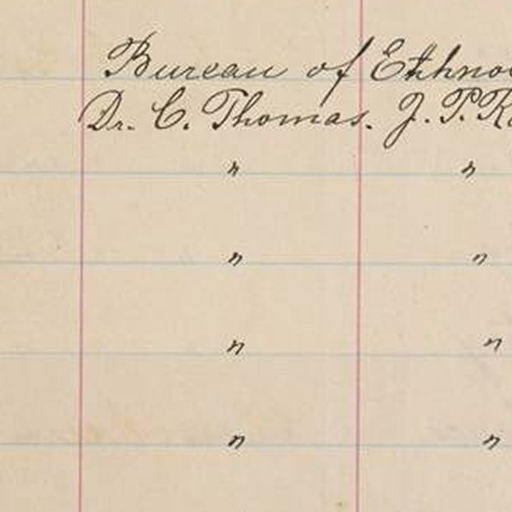 Bureau of Ethno
Dr. C. Thomas. J. P. R
" "
" "
" "
" "